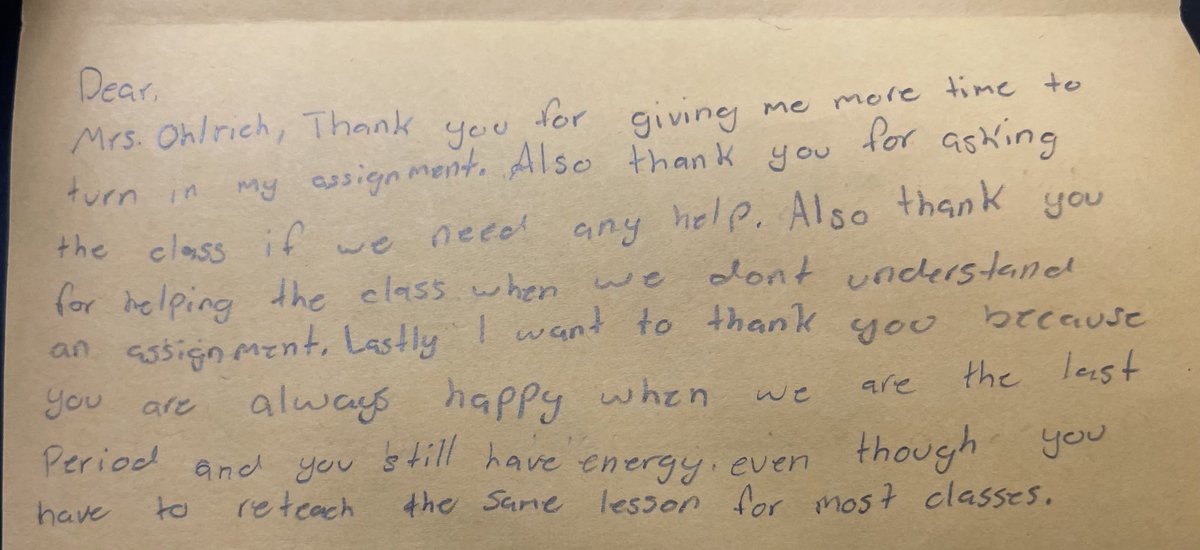 Dear,
Mrs. Ohlrich, Thank you for giving me more time to
turn in my assignment. Also thank you for asking
the class if we need any help. Also thank you
for helping the class when we dont understand
an assignment. Lastly I want to thank you because
you are always happy when we are the last
Period and you still have energy. even though you
have to reteach the same lesson for most classes.